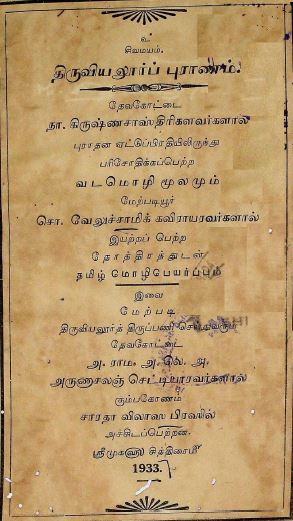 உ
சிவமயம்.
திருவியலூர்ப் புராணம்.
தேவகோட்டை
நா. கிருஷ்ணசாஸ்திரிகளவர்களால்
புராதன ஏட்டுப்பிரதியிலிருந்து
பரிசோதிக்கப்பெற்ற
வடமொழி மூலமும்
மேற்படியூர்
சொ. வேலுச்சாமிக் கவிராயரவர்களால்
இயற்றப் பெற்ற
தோத்திரத்துடன்
தமிழ் மொழிபெயர்ப்பும்
இவை
மேற்படி
திருவியலூர்த் திருப்பணி செய்துவரும்
தேவகோட்டை
அ. ராம. அ. அ.
அருணாசலஞ் செட்டியாரவர்களால்
கும்பகோணம்
சாரதா விலாஸ பிரஸில்
அச்சிடப்பெற்றன.
ஸ்ரீமுகஸ்ரீ சித்திரைமீ
1933.